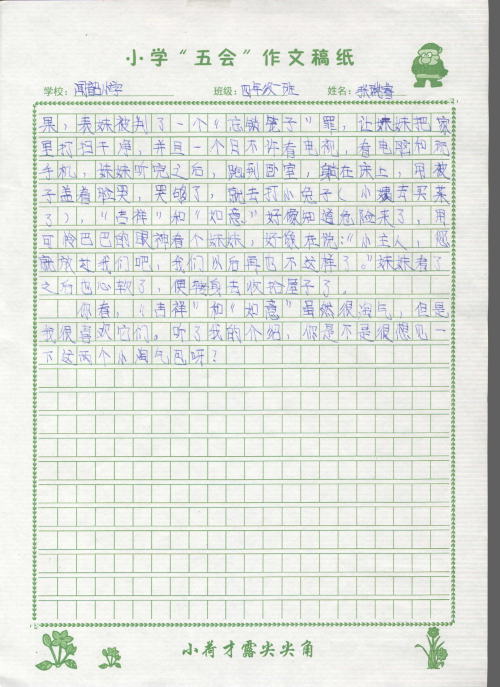 小学“五会”作文稿纸
学校：闻韶小学 班级：四年级一班 姓名：张
果，表妹被判了一个《忘锁笼子》罪，让妹妹把家
里打扫干净，并且一个月不许看电视，看电脑和玩
手机，妹妹听完之后，跑到卧室，躺在床上，用被
子盖着脸哭，哭够了，就去打小兔子（小姨去买菜
了），“吉祥”和“如意”好像知道危险来了，用
可怜巴巴的眼神看个妹妹，好像在说：“小主人，您
就放过我们吧，我们以后再也不这样了。”妹妹看了
之后也心软了，便转身去收拾屋子了。
你看，《吉祥”和“如意”虽然很淘气，但是
我很喜欢它们。听了我的介绍，你是不是很想见一
下这两个小淘气包呀？
小荷才露尖尖角